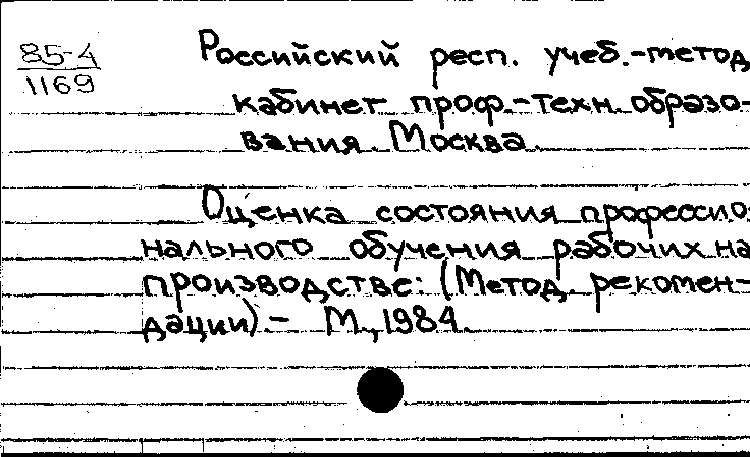 85-4
1169
Российский респ. учеб.-метод
кабинет проф.-техн. образо-
вания. Москва.
Оценка состояния профессио
нального обучения рабочих на
производстве: (Метод. рекомен-
дации).- М., 1984.